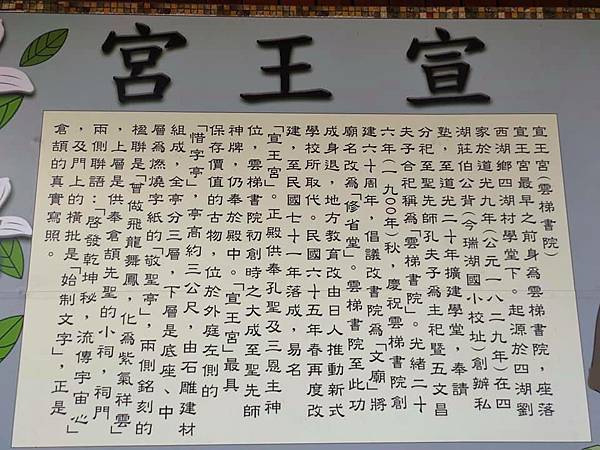 宣王宮
宣王宮(雲梯書院)
宣王宮最早之前身為雲梯書院,座落
西湖鄉四湖村學堂下。起源於四湖劉
家於道光九年(公元一八二九年)在四
湖莊伯公背(今瑞湖國小校址)創辦私
塾,至道光二十年擴建學堂,奉請
分祀至聖先師孔夫子為主祀暨五文昌
夫子合祀稱為「雲梯書院」。光緒二十
六年(一九00年)秋,慶祝雲梯書院創
建六十周年,倡議改書院為「文廟」將
廟名改為「修省堂」。雲梯書院至此功
成身退,地方教育改由日人推動新式
學校所取代。民國六十五年春再度改
建,至民國七十一年落成,易名
「宣王宮」。正殿供奉孔聖及三恩主神
位,雲梯書院初創時之大成至聖先師
神牌,仍奉於殿中。「宣王宮」最具
保存價值的古物,位於外庭左側的
「惜字亭」,亭高約三公尺,由石雕建材
組成,全亭分三層,下層是底座、中
層為燃燒字紙的「敬聖亭」,兩側銘刻的
楹聯是「曾做飛龍舞鳳,化為紫氣祥雲」
,上層是供奉倉頡先聖的小祠,祠門
兩側聯語:「啓發乾坤秘,流傳宇宙心」
,及門上的橫批是「始制文字」,正是
倉頡的真實寫照。